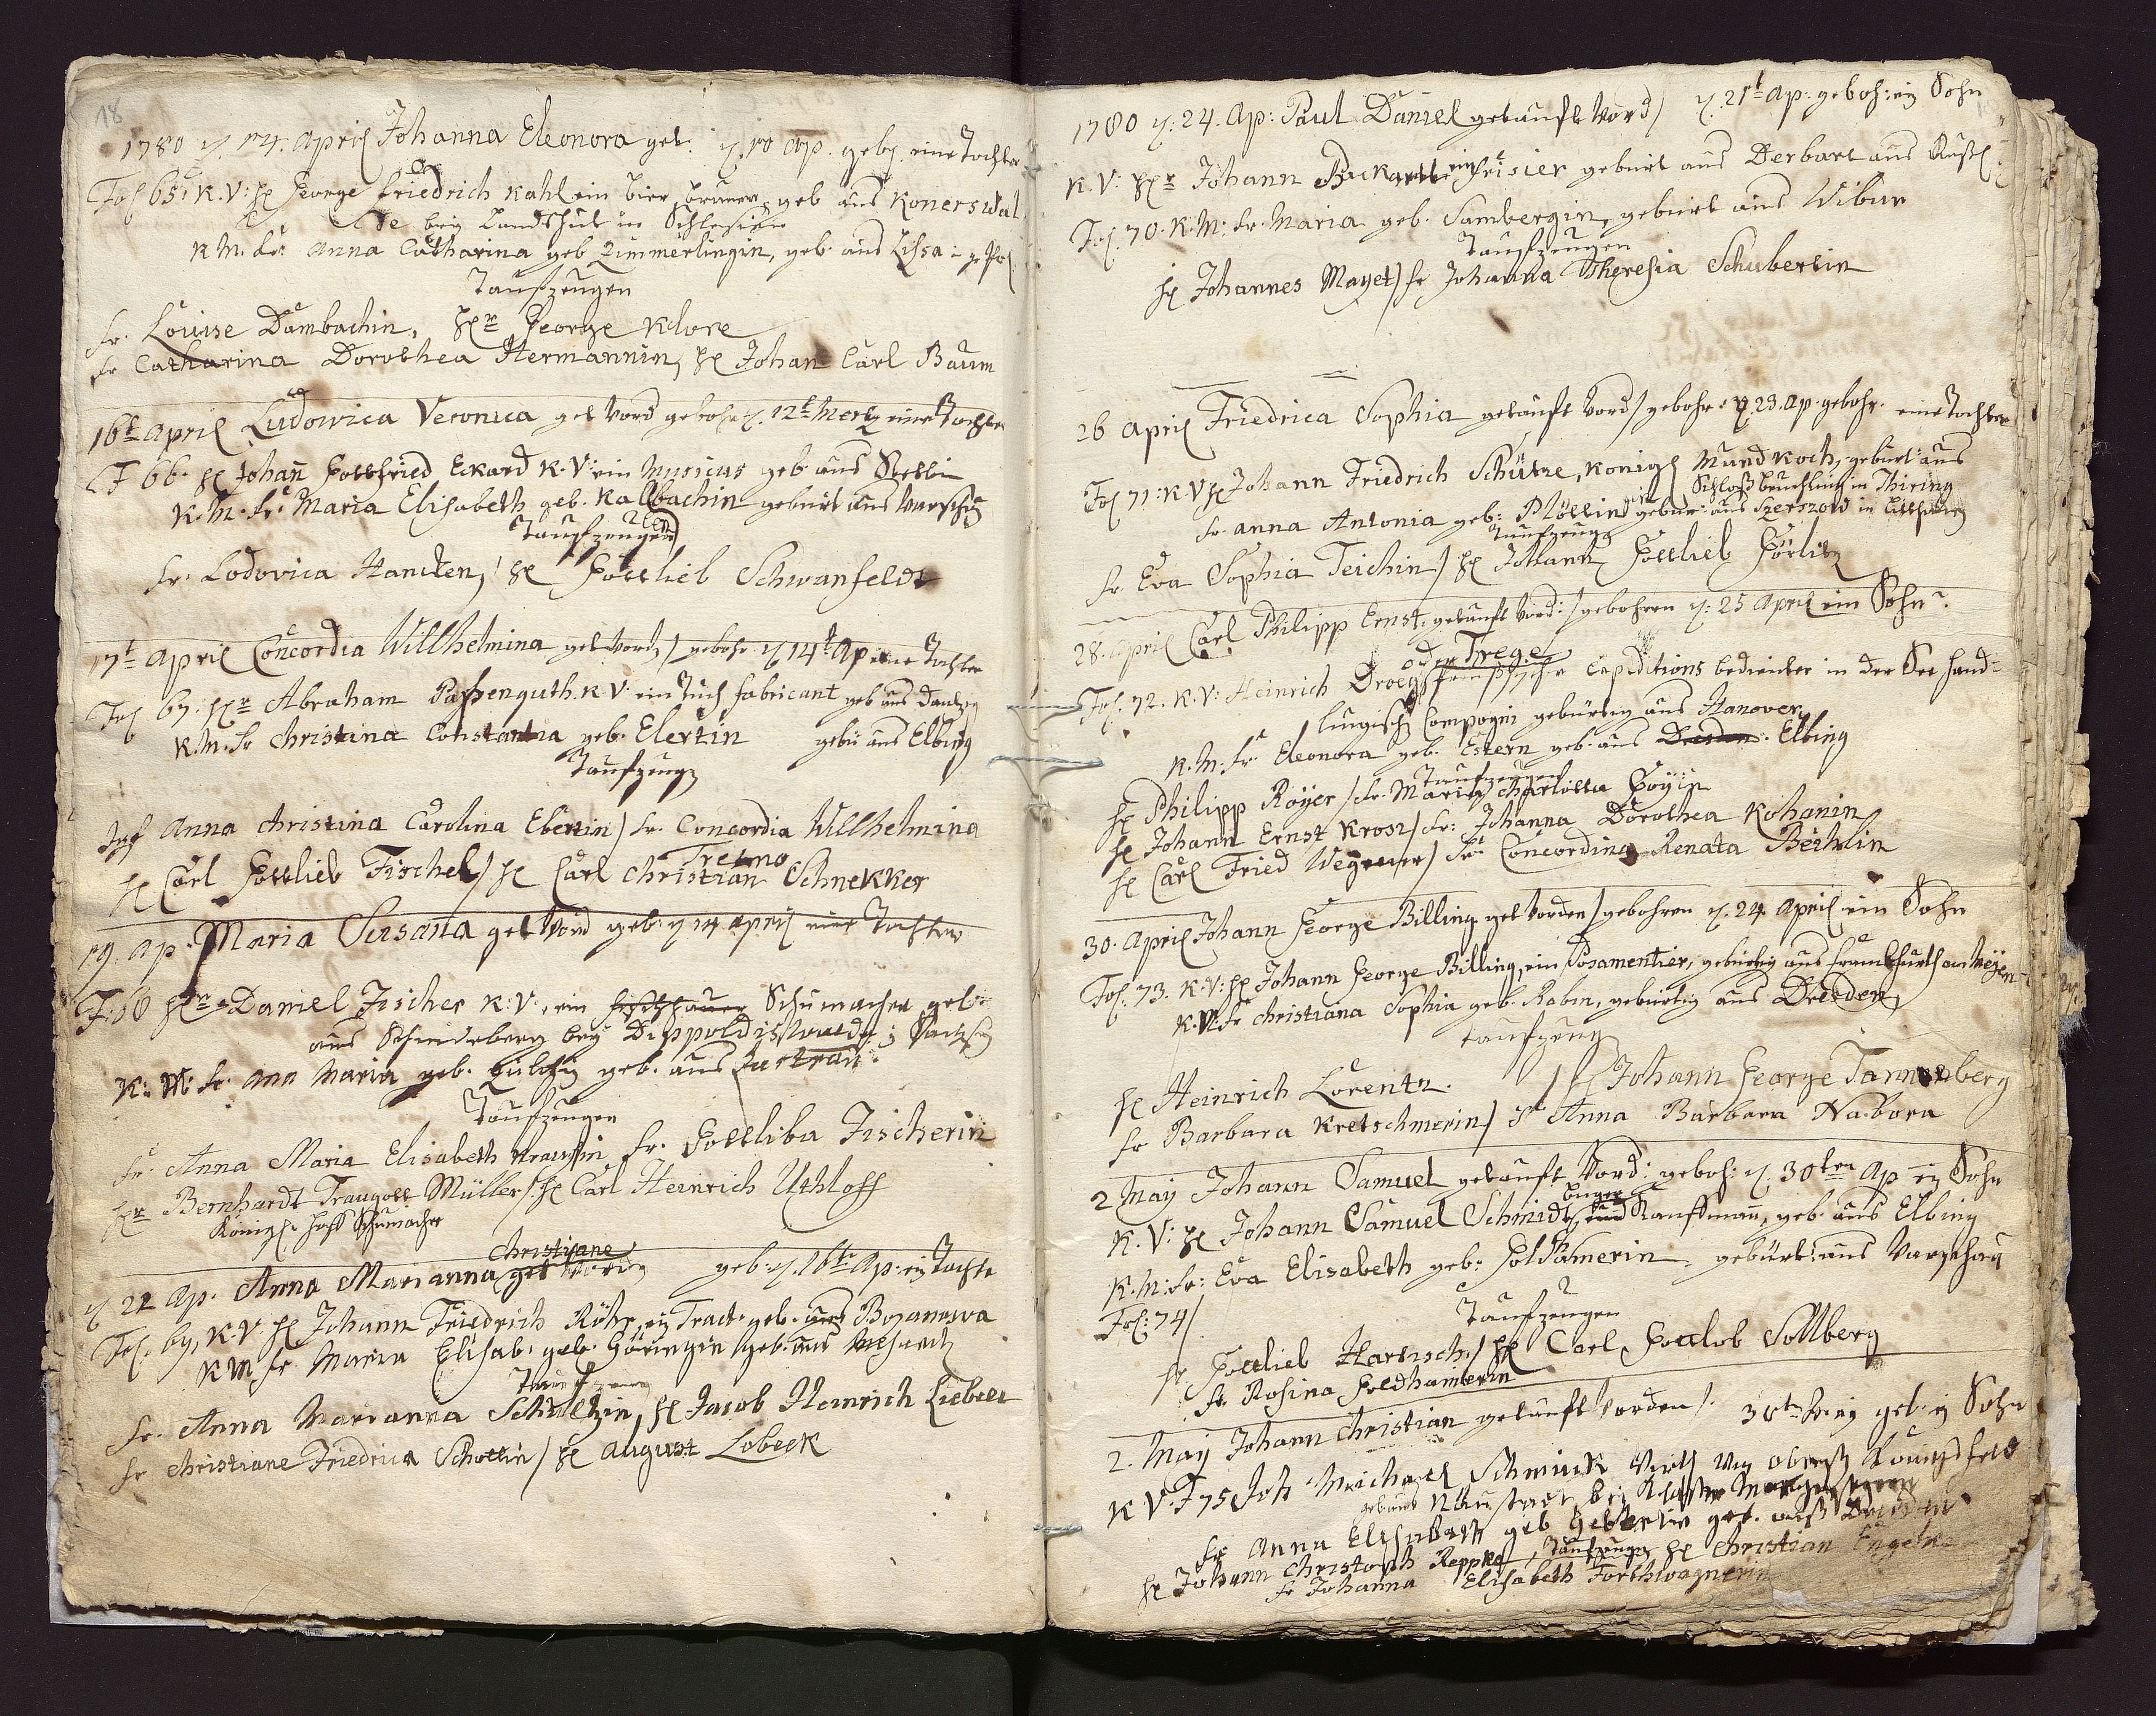 18
1780 d. 14. April Johanna Eleonora get: d. 10 Ap. geb. eine Tochter
Fol 65: K.V: H George Friedrich Kahl ein Bier Brauer, geb aus Konerswal
de bey Landshut in Schlesien
K M. Fr: Anna Catharina geb Zimmerlingin, geb. aus Lissa in gr Pol
Taufzeugen
Fr. Louise Dambachin, Hr George Klore
Fr Catharina Dorothea Hermannin, H Johan Carl Baum
16t April Ludowica Veronica get Word gebohr d. 12t Mertz eine Tochter
F 66. H Johan Gottfried Eckard K.V: ein Musicus geb. aus Stettin
K.M. Fr: Maria Elisabeth geb. Kallbachin gebürt aus Warschau
Taufzeugen
Fr. Lodovica Hancken, H Gottlieb Schwanfeldt
17t April Concordia Willhelmina get Word / gebohr d 14t Ap eine Tochter
Fol 67: Hr Abraham Passenguth. K V. ein Tuch fabricant geb aus Dantzig
K.M. Fr Christina Constantia geb. Elertin gebü aus Elbing
Taufzeug
Jgf Anna Christina Carolina Ebertin / Fr. Concordia Willhelmina
Tresmo
H Carl Gottlieb Fischel / H Carl Christian Schnekker
19. Ap. Maria Susana get Word geb. d 14 April eine Tochter
F: 68 Hr Daniel Fischer K: V. ein Schumacher geb
aus Schmideberg bey Dippoldiswalde in Sachsen
K: M: Fr. Ana Maria geb. geb. aus
Taufzeugen
Fr. Anna Maria Elisabeth Krausin Fr. Gottliba Fischerin
Hr Bernhardt Traugott Müller / H Carl Heinrich Uthloff
Königl. Hoff Schumacher
Christiane
d 21 Ap. Anna Marianna get Worden geb. d. 16t Ap: ein Tochte
Fol. 69, K.V. H Johann Friedrich Röhr, ein Tract. geb. aus Bojanowa
K M Fr. Maria Elisab. geb. Höringin geb. aus
Taufzeugen
Fr. Anna Marianna Schultzin, H Jacob Heinrich Liebelt
Fr Christiane Friedrica Schottin / H August Lobeck
1780 d. 24. Ap: Paul Daniel getauft Word / d. 21t Ap: geboh: ein Sohn
K.V: Hr Johann ein Frisier geburt aus Derbart aus
Fol. 70. K.M: Fr. Maria geb. Sambergin, geburt aus Wibur
Taufzeugen
H Johannes Mayet / Fr Johanna Theresia Schubertin
26 April Friedrica Sophia getauft Word / gebohr d 23. Ap. gebohr. eine Tochter
Fol 71: K.V H Johann Friedrich Schütze, Königl Mundkoch, gebürt aus
Schloss beuchling in Thiring
Fr. Anna Antonia geb: Plöttin gebur: aus Szerszow in Litthauen
Taufzeug
Fr. Eva Sophia Teichin / H Johann Gottlieb Görlitz
28. April Carl Philipp Ernst: getauft Word: / gebohren d: 25 April ein Sohn
oder Trege
Fol. 72. K.V: Heinrich Droege Expeditions bedienter in der See hand=
lungisch Compagni gebürtig aus Hanover
K.M: Fr. Eleonora geb. Estern geb. aus Dresden. Elbing
Taufzeugen
H Philipp Royer / Fr. Maria Charlotta Goyin
H Johann Ernst Krosz / Fr: Johanna Dorothea Kohanin
H Carl Fried Wegener / Fr. Concordina Renata Beihlin
30. April Johann George Billing get Worden / gebohren d. 24 April ein Sohn
Fol. 73. K.V: H Johann George Billing, ein Posamentier, gebürtig aus Franckfurth am Meyn
K.M Fr Christiana Sophia geb. Rabin, gebürtig aus Dresden
Taufzeug
H Heinrich Lorentz. / H Johann George Tannenberg
Fr Barbara Kretschmerin / Fr Anna Barbara Nabora
2 May Johann Samuel getauft Word: geboh: d. 30ten Ap ein Sohn
Burger
K. V: H Johann Samuel Schmidt, und Kauffmann, geb. aus Elbing
K: M: Fr: Eva Elisabeth geb: Goldhamerin, gebürt: aus Warschau
Fol: 74 /
Taufzeugen
H Gottlieb Hartisch, / H Carl Gottlob Sollberg
Fr Rosina Goldhamerin
2. May Johann Christian getauft Worden / geb. ein Sohn
K V. F 75 Joh Michael Schmuck
geb aus Neustadt bei
Fr Anna Elisabeth geb geb. aus Dresden
H Johann Christoph Reppke, Taufzeugen H Christian Engelke
Fr Johanna Elisabeth Forthwagnerin